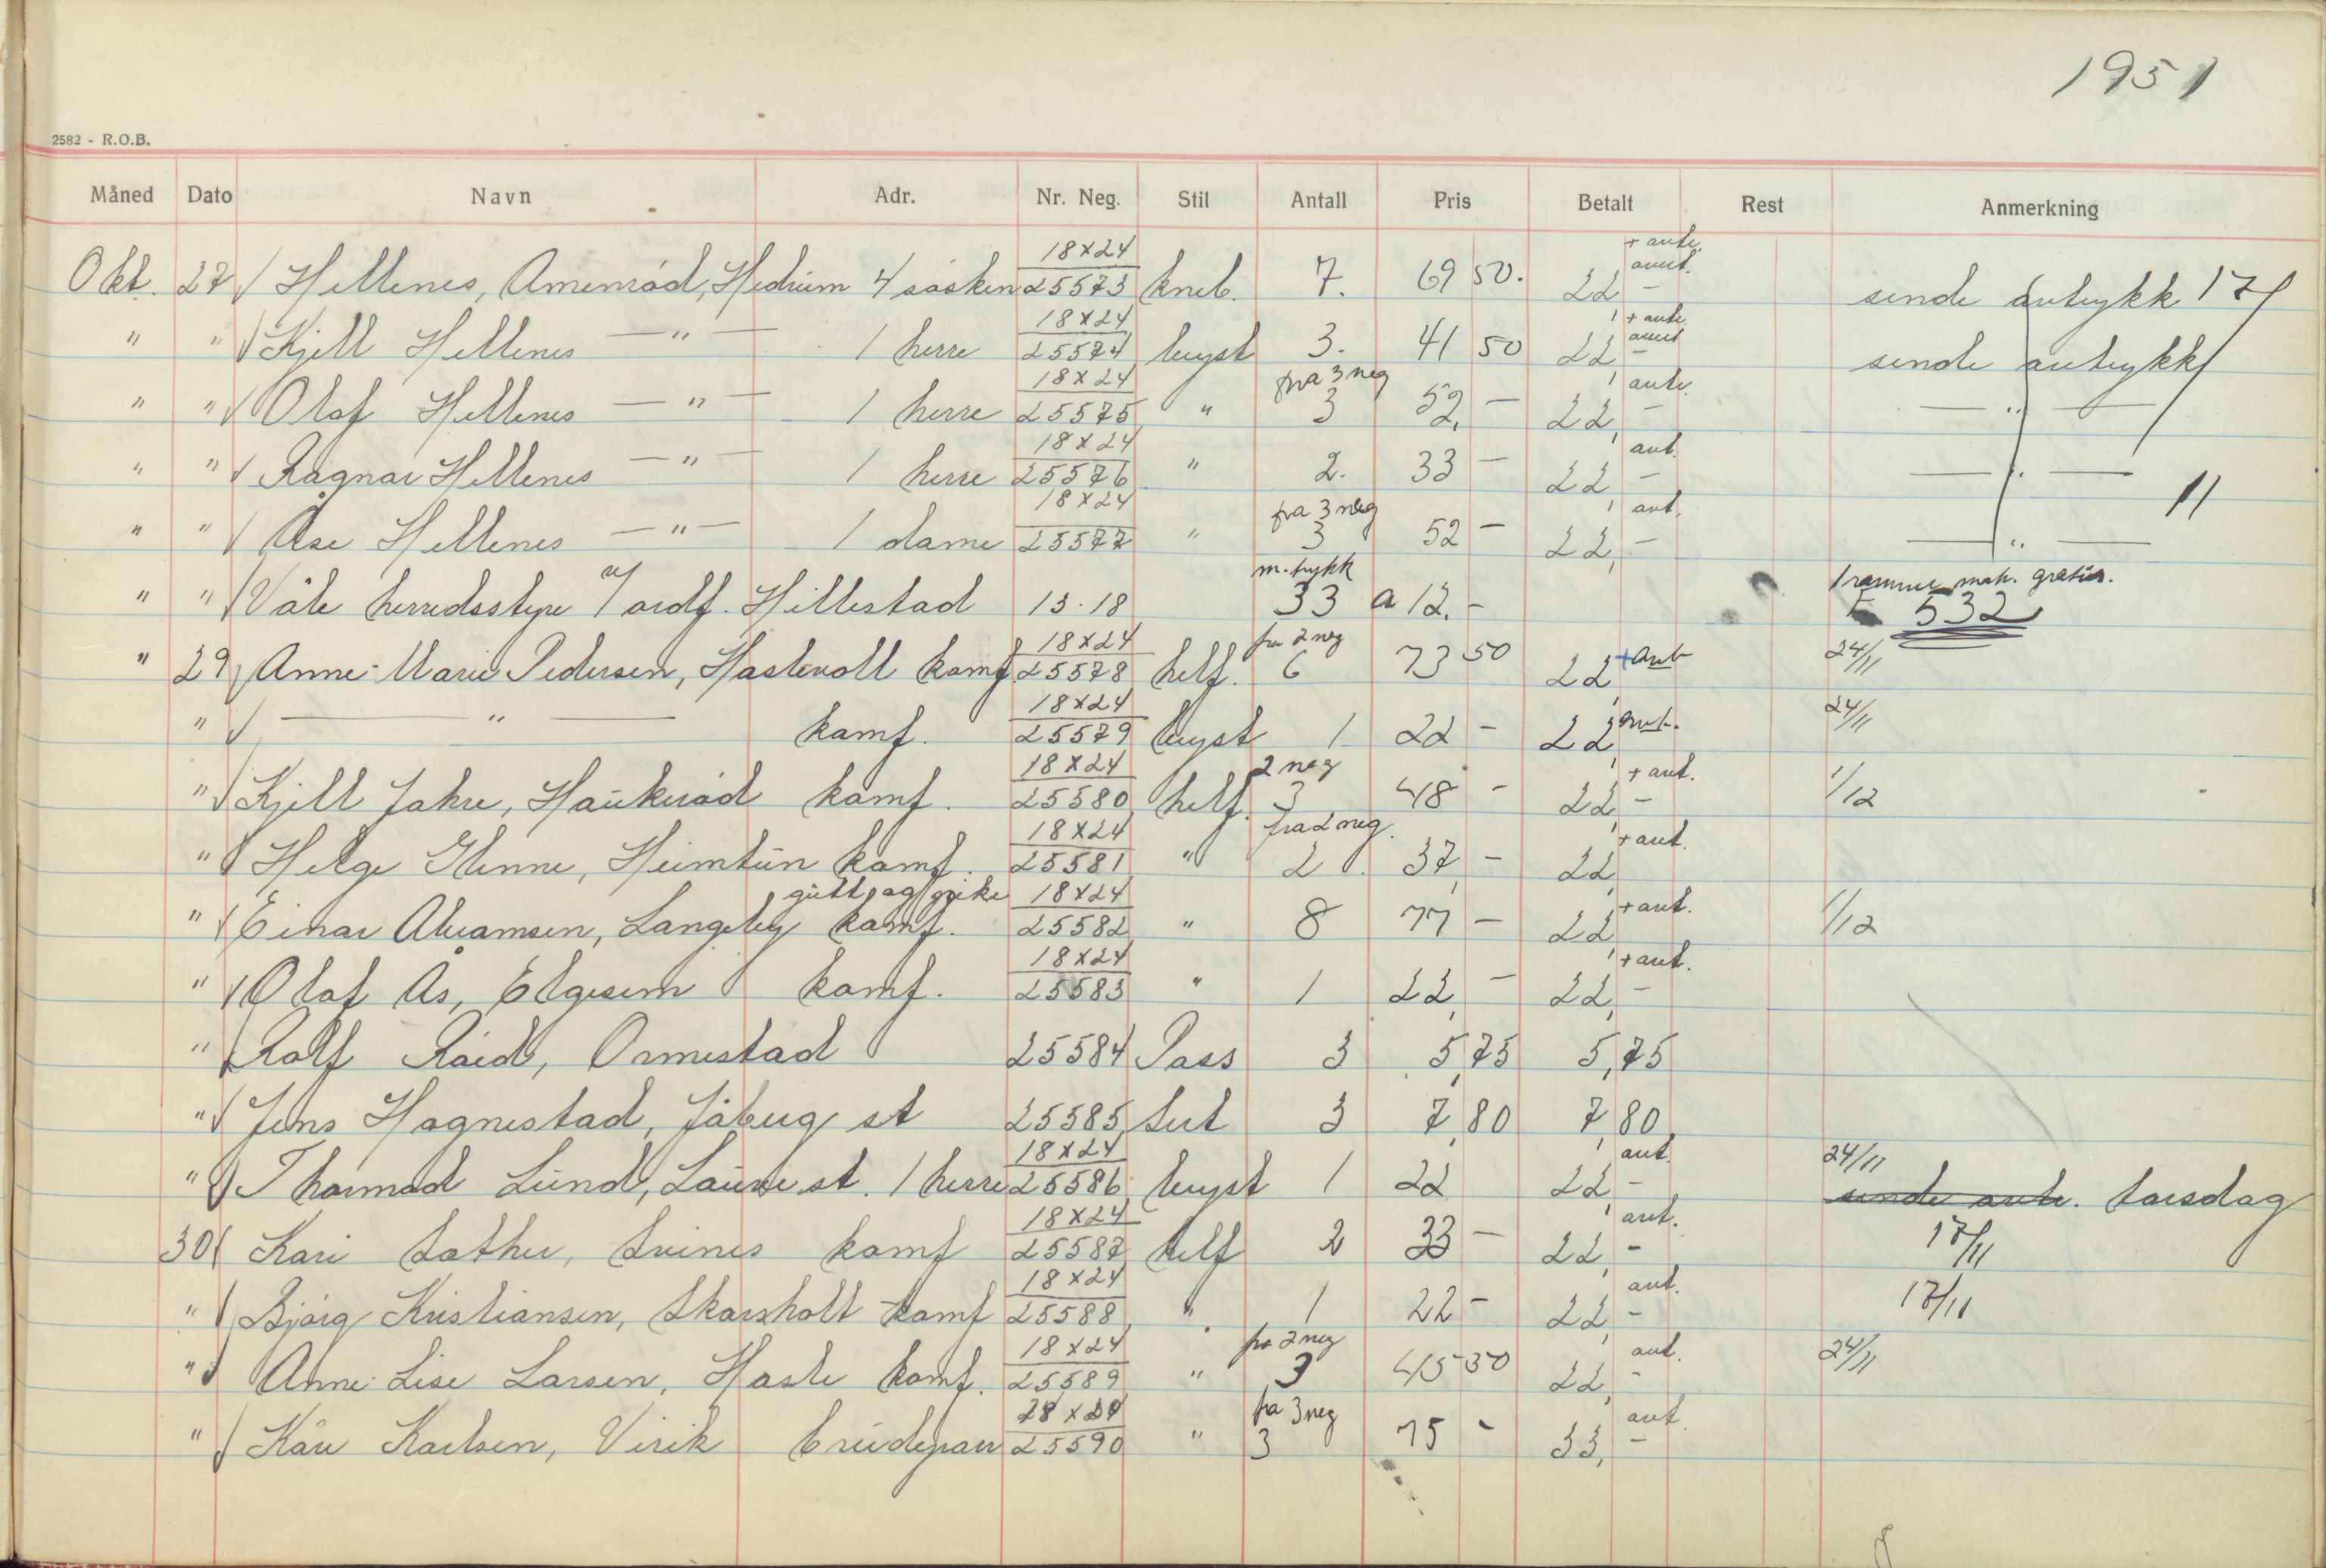 1951
2582 - R.O.B.
Måned Dato Navn Adr. Nr. Neg. Stil Antall Pris Betalt Rest Anmerkning
Okt. 27 Hellenes, Amenrød, Hedrum 4 søsken 18x24 25573 kneb. 7. 69 50. 22,- + antr. avert. sende avtrykk 17/
" " Kjell Hellenes — " — 1 herre 18x24 25574 byst 3. 41 50 22,- + antr. avert sende avtrykk
" " Olaf Hellenes — " — 1 herre 18x24 25575 " fra 3 neg 3 52,- 22,- antr. — " —
" " Ragnar Hellenes — " — 1 herre 18x24 25576 " 2. 33 - 22,- ant. — " — 11
" " Åse Hellenes — " — 1 dame 18x24 25577 " fra 3 neg 3 52 - 22,- ant. — " —
" " Våle herredsstyre v/ ordf. Hillestad 13.18 m. trykk 33 a 12.- 1 ramme mah. gratis. 532
" 29 Anne-Marie Pedersen, Hastevoll konf. 18x24 25578 helf. fra 2 neg 6 73 50 22, + ant 24/11
" — " — konf. 18x24 25579 byst 1 22 - 22, ant. 24/11
" Kjell Jahre, Haukerød konf. 18x24 25580 helf. 2 neg 3 48 - 22,- + ant. 1/12
" Helge Glenne, Heimtun konf. 18x24 25581 " fra 2 neg. 2 37,- 22, + ant.
" Einar Abramsen, Langeby konf. gutt og pike 18x24 25582 " 8 77 - 22, + ant. 1/12
" Olaf Ås, Elgesem konf. 18x24 25583 " 1 22,- 22,- + ant.
" Rolf Røed, Ormestad 25584 Pass 3 5,75 5,75
" Jens Hognestad, Jåberg st 25585 Sut 3 7,80 7,80
" Thormod Lund, Lauve st. 1 herre 18x24 25586 byst 1 22 22,- ant. 24/11 sende antr. torsdag
30 Kari Sather, Svines konf 18x24 25587 helf 2 33 - 22,- ant. 17/11
" Bjørg Kristiansen, Skarsholt konf 18x24 25588 " 1 22 - 22,- ant. 17/11
" Anne-Lise Larsen, Hasle konf. 18x24 25589 " fra 2 neg 3 45 50 22,- ant. 24/11
" Kåre Karlsen, Virik brudepar 25590 " fra 3 neg 3 75 - 33,- ant.